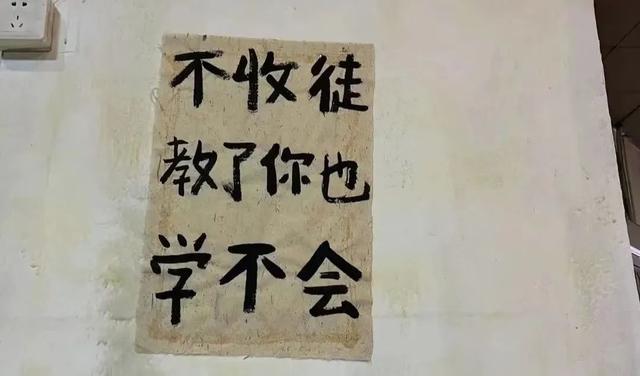 不收徒
教了你也
学不会